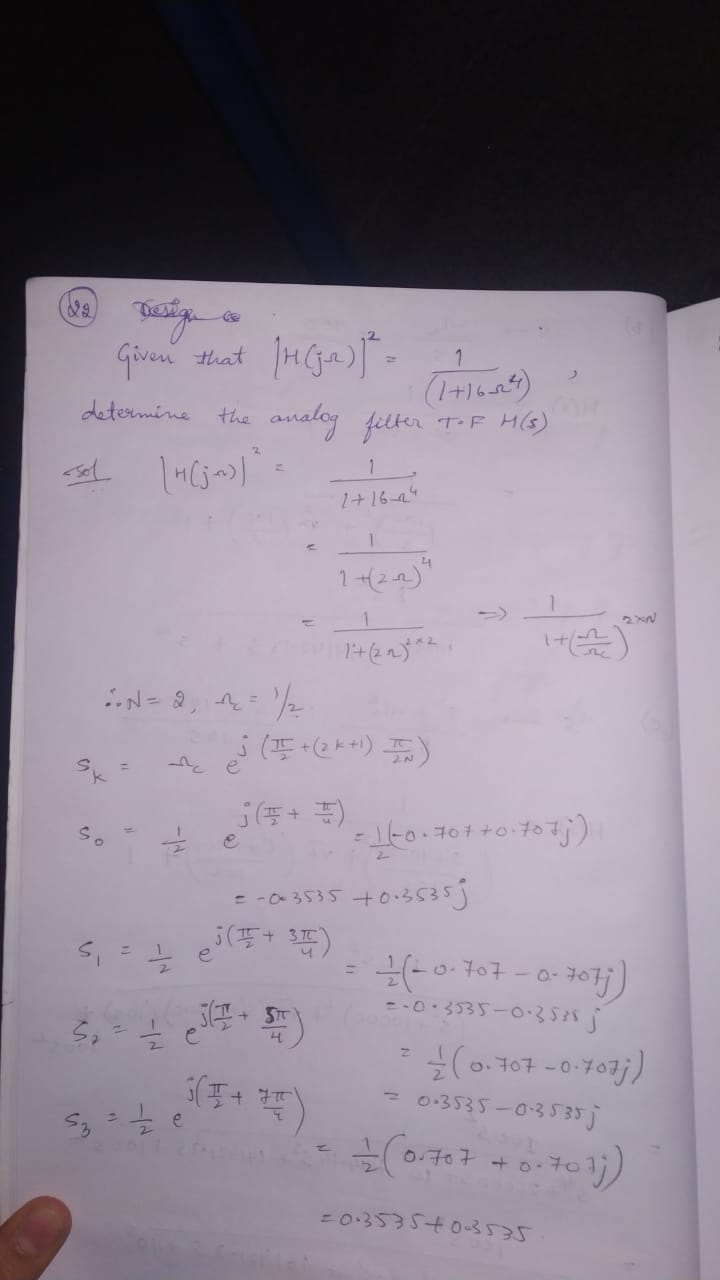 22 Design a
Given that |H(jΩ)|² = 1/(1+16Ω⁴) ,
determine the analog filter T.F H(s)
sol |H(jΩ)|² = 1/(1+16Ω⁴)
= 1/(1+(2Ω)⁴)
= 1/(1+(2Ω)^(2×2)) ⇒ 1/(1+(Ω/Ωc)^(2×N))
∴ N = 2, Ωc = 1/2
s_k = Ωc e^(j(π/2 + (2k+1) π/2N))
s₀ = 1/2 e^(j(π/2 + π/4)) = 1/2(-0.707+0.707j)
= -0.3535 + 0.3535j
s₁ = 1/2 e^(j(π/2 + 3π/4)) = 1/2(-0.707 - 0.707j)
= -0.3535 - 0.3535j
s₂ = 1/2 e^(j(π/2 + 5π/4)) = 1/2(0.707 - 0.707j)
= 0.3535 - 0.3535j
s₃ = 1/2 e^(j(π/2 + 7π/4)) = 1/2(0.707 + 0.707j)
= 0.3535 + 0.3535